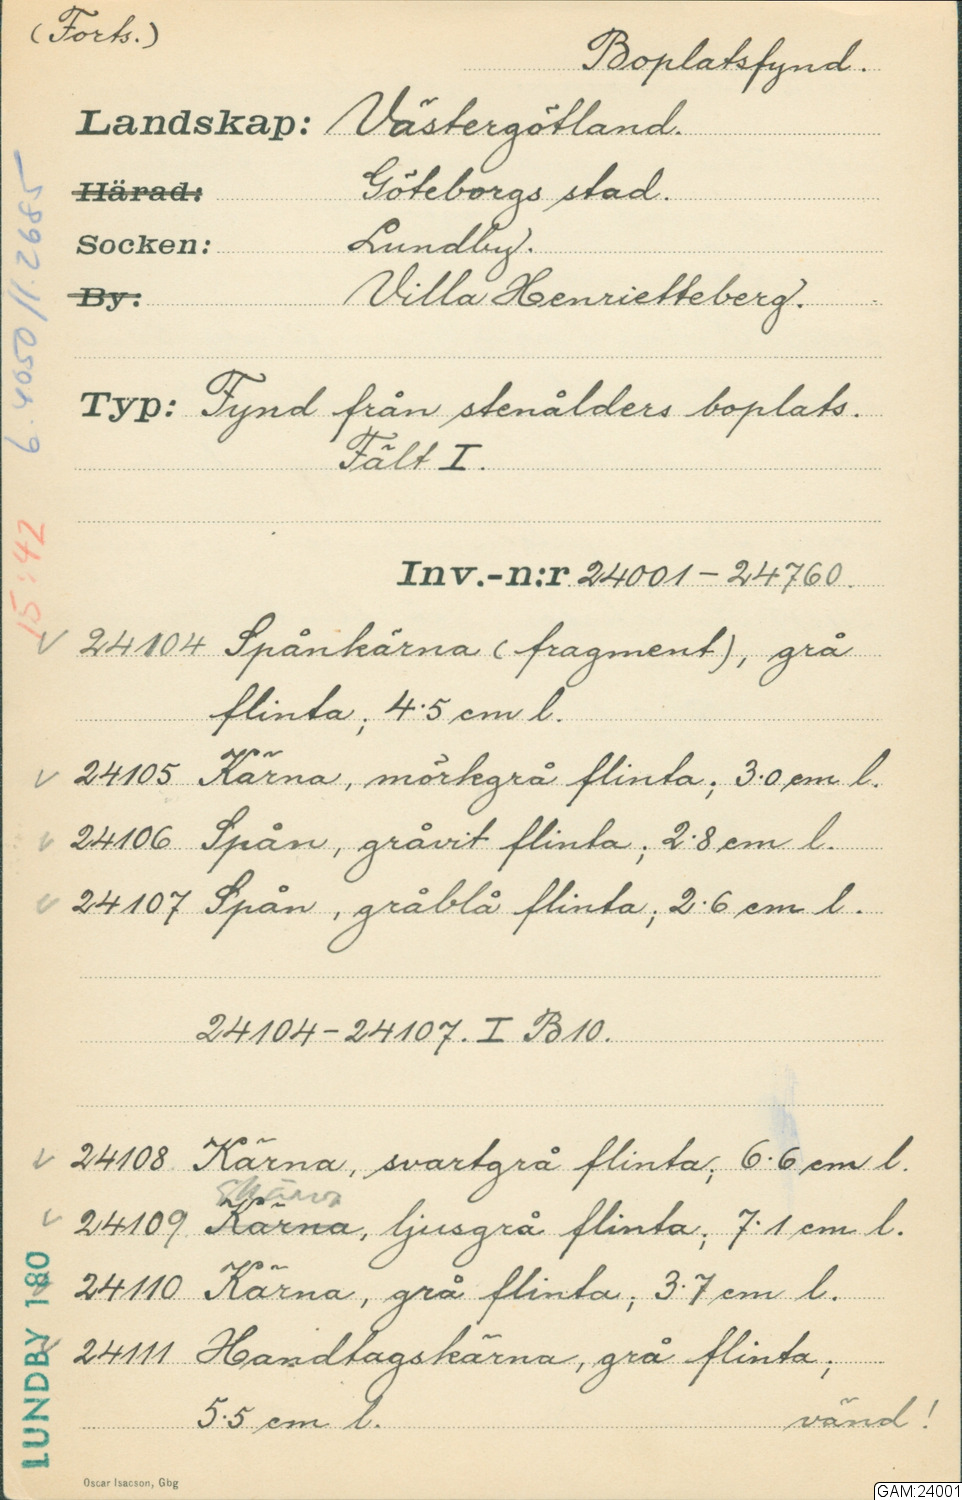 (Forts.)
Boplatsfynd.
Landskap: Västergötland.
Härad: Göteborgs stad.
Socken: Lundby.
By: Villa Henrietteberg.
Typ: Fynd från stenålders boplats.
Fält I.
Inv.-n:r 24001-24760.
24104 Spånkärna (fragment), grå
flinta; 4.5 cm l.
24105 Kärna, mörkgrå flinta; 3.0 cm l.
24106 Spån, gråvit flinta; 2.8 cm l.
24107 Spån, gråblå flinta; 2.6 cm l.
24104-24107. I B 10.
24108 Kärna, svartgrå flinta; 6.6 cm l.
skärva
24109 Kärna, ljusgrå flinta; 7.1 cm l.
24110 Kärna, grå flinta; 3.7 cm l.
24111 Handtagskärna, grå flinta;
5.5 cm l. vänd!
Oscar Isacson, Gbg
15:42
6.4050/11.2685
LUNDBY 180
GAM:24001